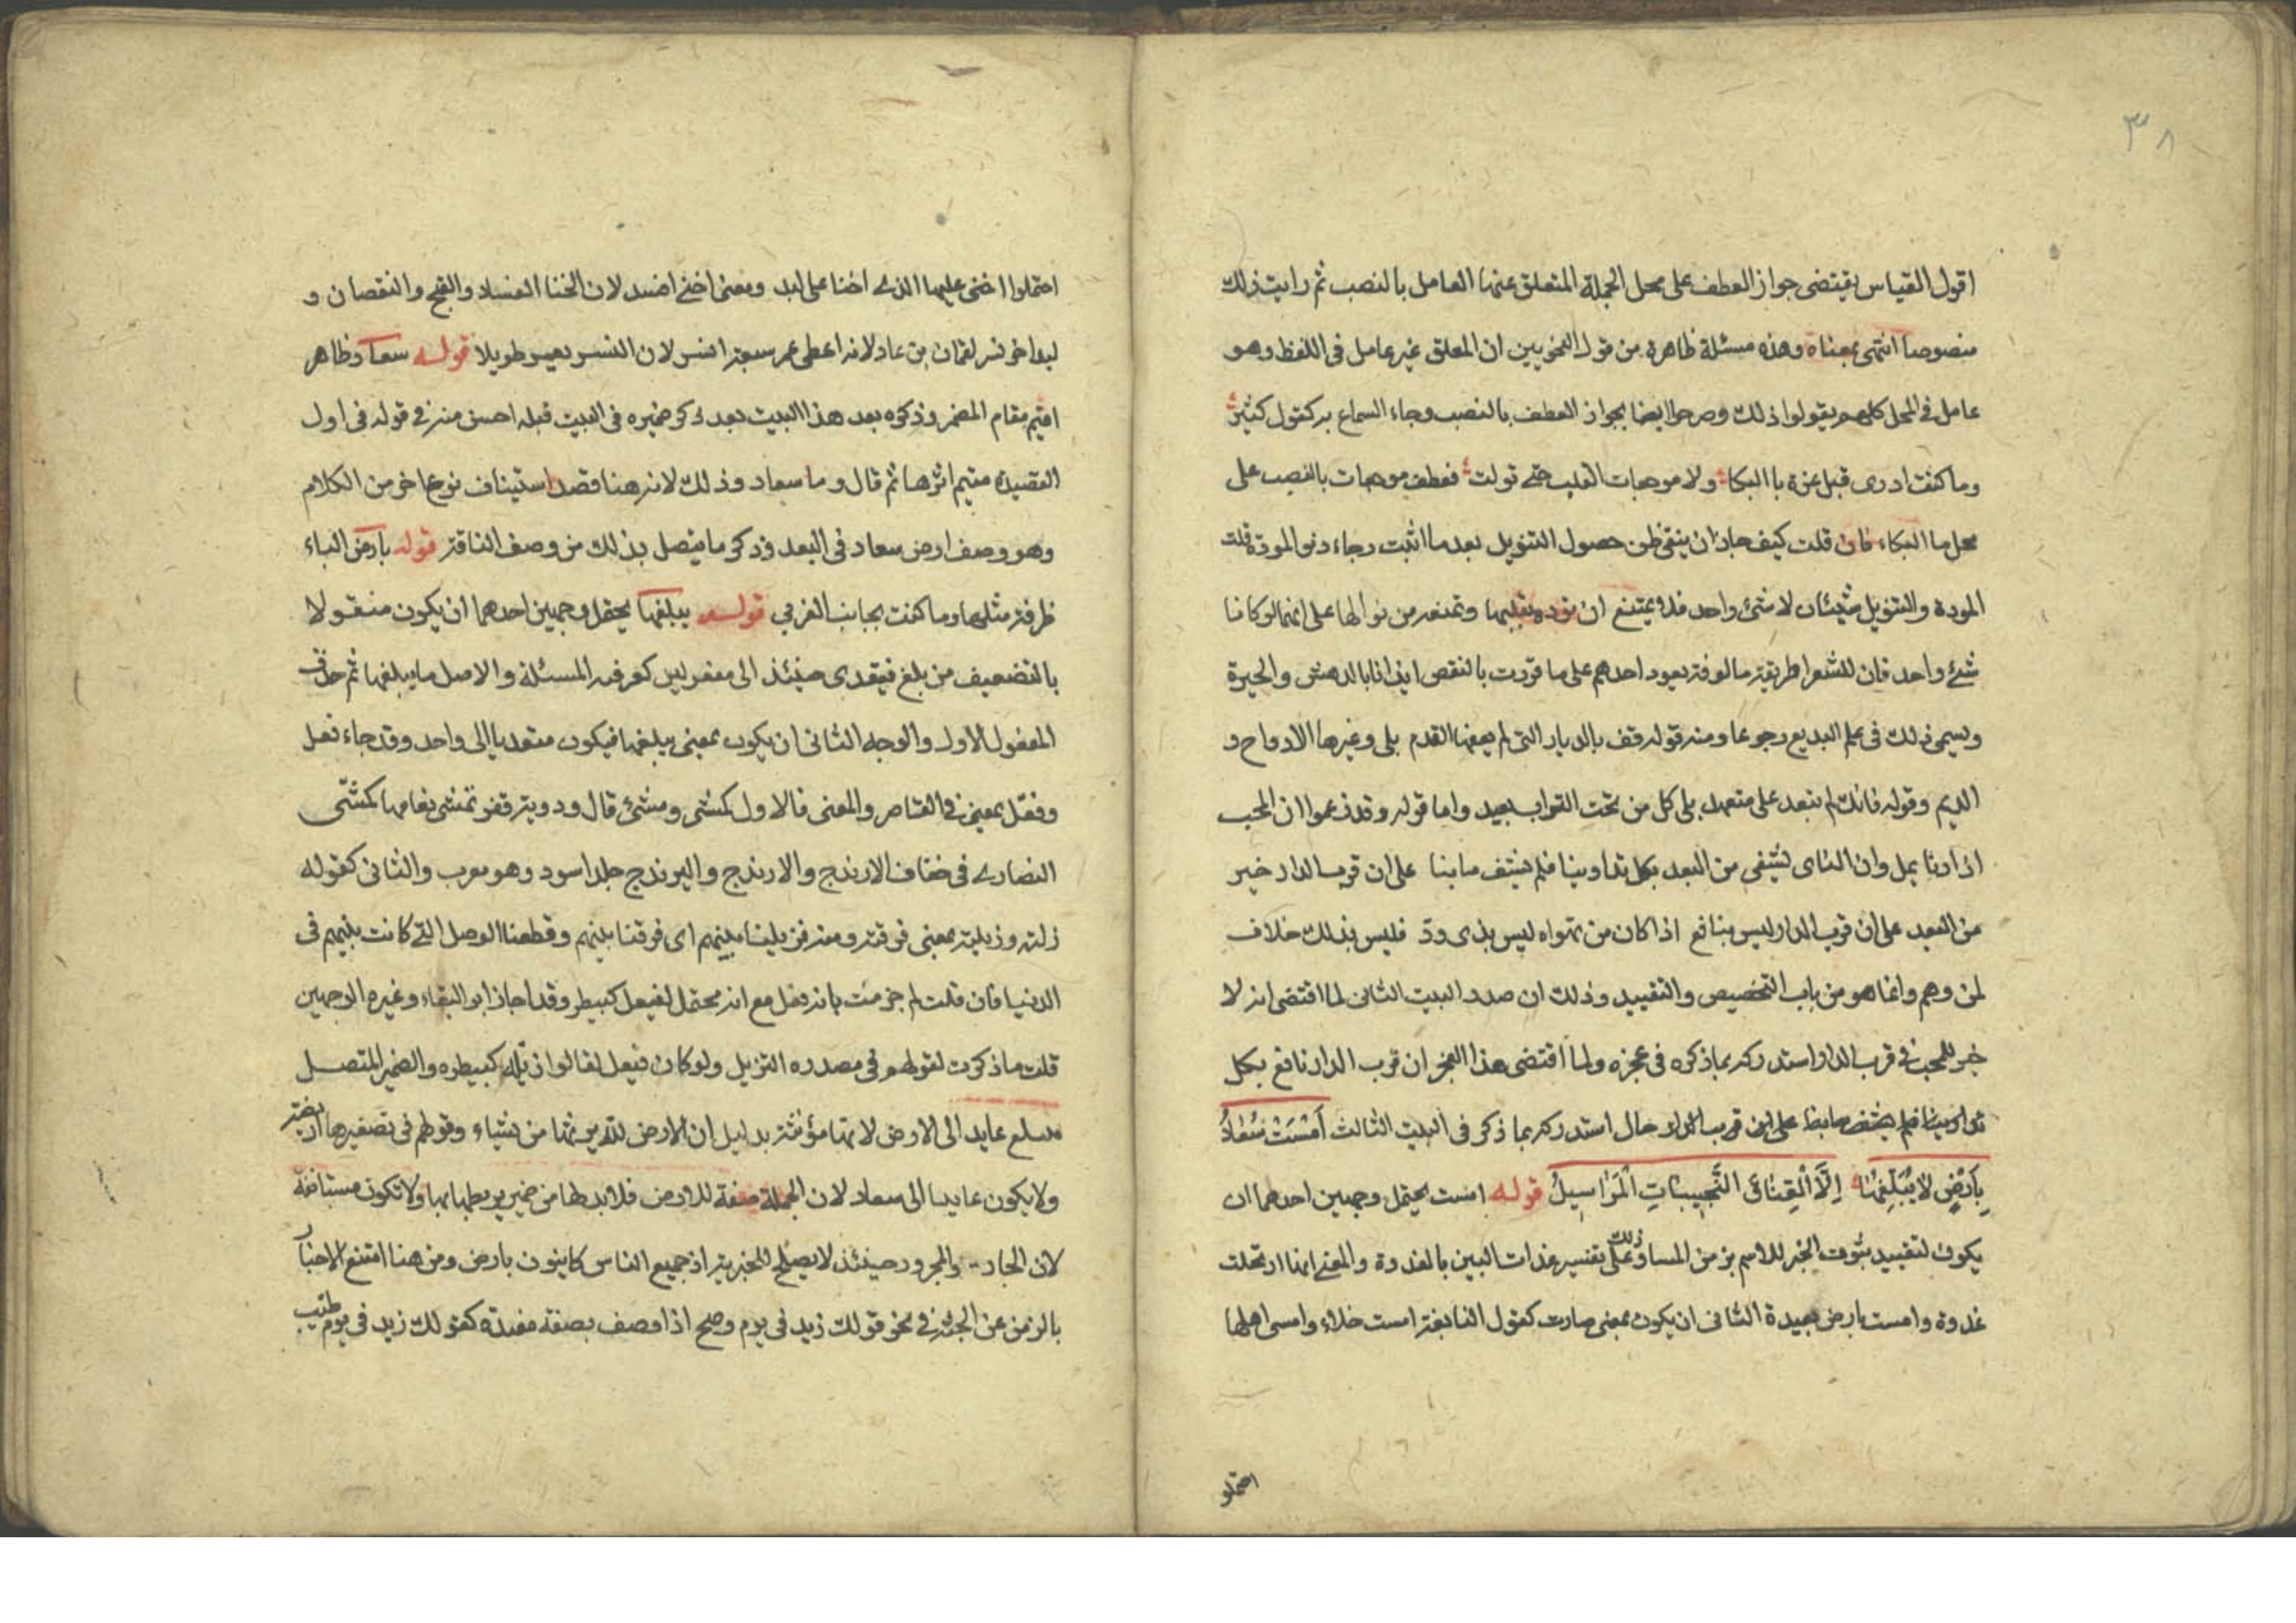 ٣٨
اقول القياس يقتضى جواز العطف على محل الجملة المتعلق عنها العامل بالنصب ثم رايت ذلك
منصوصا انتهى بمعناه وهذه مسئلة ظاهرة من قول النحويين ان المعلق غير عامل فى اللفظ وهو
عامل فى المحل كلهم يقولوا ذلك وصرحوا ايضا بجواز العطف بالنصب وجاء السماع به كقول كثير
وما كنت ادرى قبل عزة ما البكا ولا موجعات القلب حتى تولت فعطف موجعات بالنصب على
محل ما البكاء فان قلت كيف جاز ان ينفى ظن حصول التنويل بعد ما اثبت رجاء دنو المودة قلت
المودة والتنويل شيئان لا شئ واحد فلا يمتنع ان توده بقلبها وتمنعه من نوالها على انهما لو كانا
شئ واحد فان للشعرا طريقة مالوفة يعود احدهم على ما قررت بالنقض ايذانا بالدهش والحيرة
ويسمى ذلك فى علم البديع رجوعا ومنه قوله قف بالديار التى لم يعفها القدم بلى وغيرها الارواح و
الديم وقوله فانك لم تبعد على متعهد بلى كل من تحت التراب بعيد واما قوله وقد زعموا ان المحب
اذا دنا يمل وان الناى يشفى من البعد بكل تداوينا فلم يشف ما بنا على ان قرب الدار خير
من البعد على ان قرب الدار ليس بنافع اذا كان من تهواه ليس بذى ود فليس بذلك خلاف
لمن وهم وانما هو من باب التخصيص والتقييد وذلك ان صدر البيت الثانى لما اقتضى انه لا
خير للمحب فى قرب الدار استدركه بما ذكره فى عجزه ولما اقتضى هذا العجز ان قرب الدار نافع بكل
تداوينا فلم يشف ما بنا على ان قرب الدار حال استدركه بما ذكر فى البيت الثالث اَمْسَتْ سُعَادُ
بِاَرْضٍ لَا يُبَلِّغُهَا اِلَّا الْعِتَاقُ النَّجِيبَاتُ الْمَرَاسِيلُ قوله امست يحتمل وجهين احدهما ان
يكون لتقييد ثبوت الخبر للاسم بزمن المسا وذلك على تفسير غداة البين بالغدوة والمعنى انها ارتحلت
غدوة وامست بارض بعيدة الثانى ان يكون بمعنى صارت كقول النابغة امست خلاء وامسى اهلها
احتملو
احتملوا اخنى عليها الذى اخنا على لبد ومعنى اخنى افسد لان الخنا الفساد والقبح والنقصان و
لبد اخر نسر لقمان بن عاد لانه اعطى عمر سبعة انسر لان النسر يعيس طويلا قوله سعاد ظاهر
اقيم مقام المضمر وذكره بعد هذا البيت بعد ذكر ضميره فى البيت قبله احسن منه فى قوله فى اول
القصيدة متيم اثرها ثم قال وما سعاد وذلك لانه هنا قصد استيناف نوع اخر من الكلام
وهو وصف ارض سعاد فى البعد وذكر ما يتصل بذلك من وصف الناقة قوله بارض الباء
ظرفة مثلها وما كنت بجانب الغربي قوله يبلغها يحتمل وجهين احدهما ان يكون منقولا
بالتضعيف من بلغ فيتعدى حينئذ الى مفعولين كعرفه المسئلة والاصل ما يبلغها ثم حذف
المفعول الاول والوجه الثانى ان يكون بمعنى يبلغها فيكون متعديا الى واحد وقد جاء فعل
وفعّل بمعنى فى القاصر والمعنى فالاول كمشى ومشئ قال ودوية قفر تمشى نعامها كمشى
النصارى فى خفاف الارندج والارندج واليرندج جلد اسود وهو معرب والثانى كقوله
زلته وزيلته بمعنى فرقته ومنه فزيلنا بينهم اى فرقنا بينهم وقطعنا الوصل التى كانت بينهم فى
الدنيا فان قلت لم جزمت بانه فعل مع انه محتمل لفيعل كبيطر وقد اجاز ابو البقاء وغيره الوجهين
قلت ما ذكرت لقولهم فى مصدره التزييل ولو كان فيعل لقالوا زيلة كبيطره والضمير المتصل
عايد الى الارض لانها مؤنثة بدليل ان الارض لله يورثها من يشاء وقولهم فى تصغيرها اريضة
ولا يكون عايدا الى سعاد لان الجملة صفة للارض فلا بد لها من ضمير يربطها بها ولا تكون مستانفة
لان الجار والمجرور حينئذ لا يصلح للخبرية اذ جميع الناس كاينون بارض ومن هنا امتنع الاخبار
بالزمن عن الجثة فى نحو قولك زيد فى يوم وصح اذا وصف بصفة مفيدة كقولك زيد فى يوم طيب